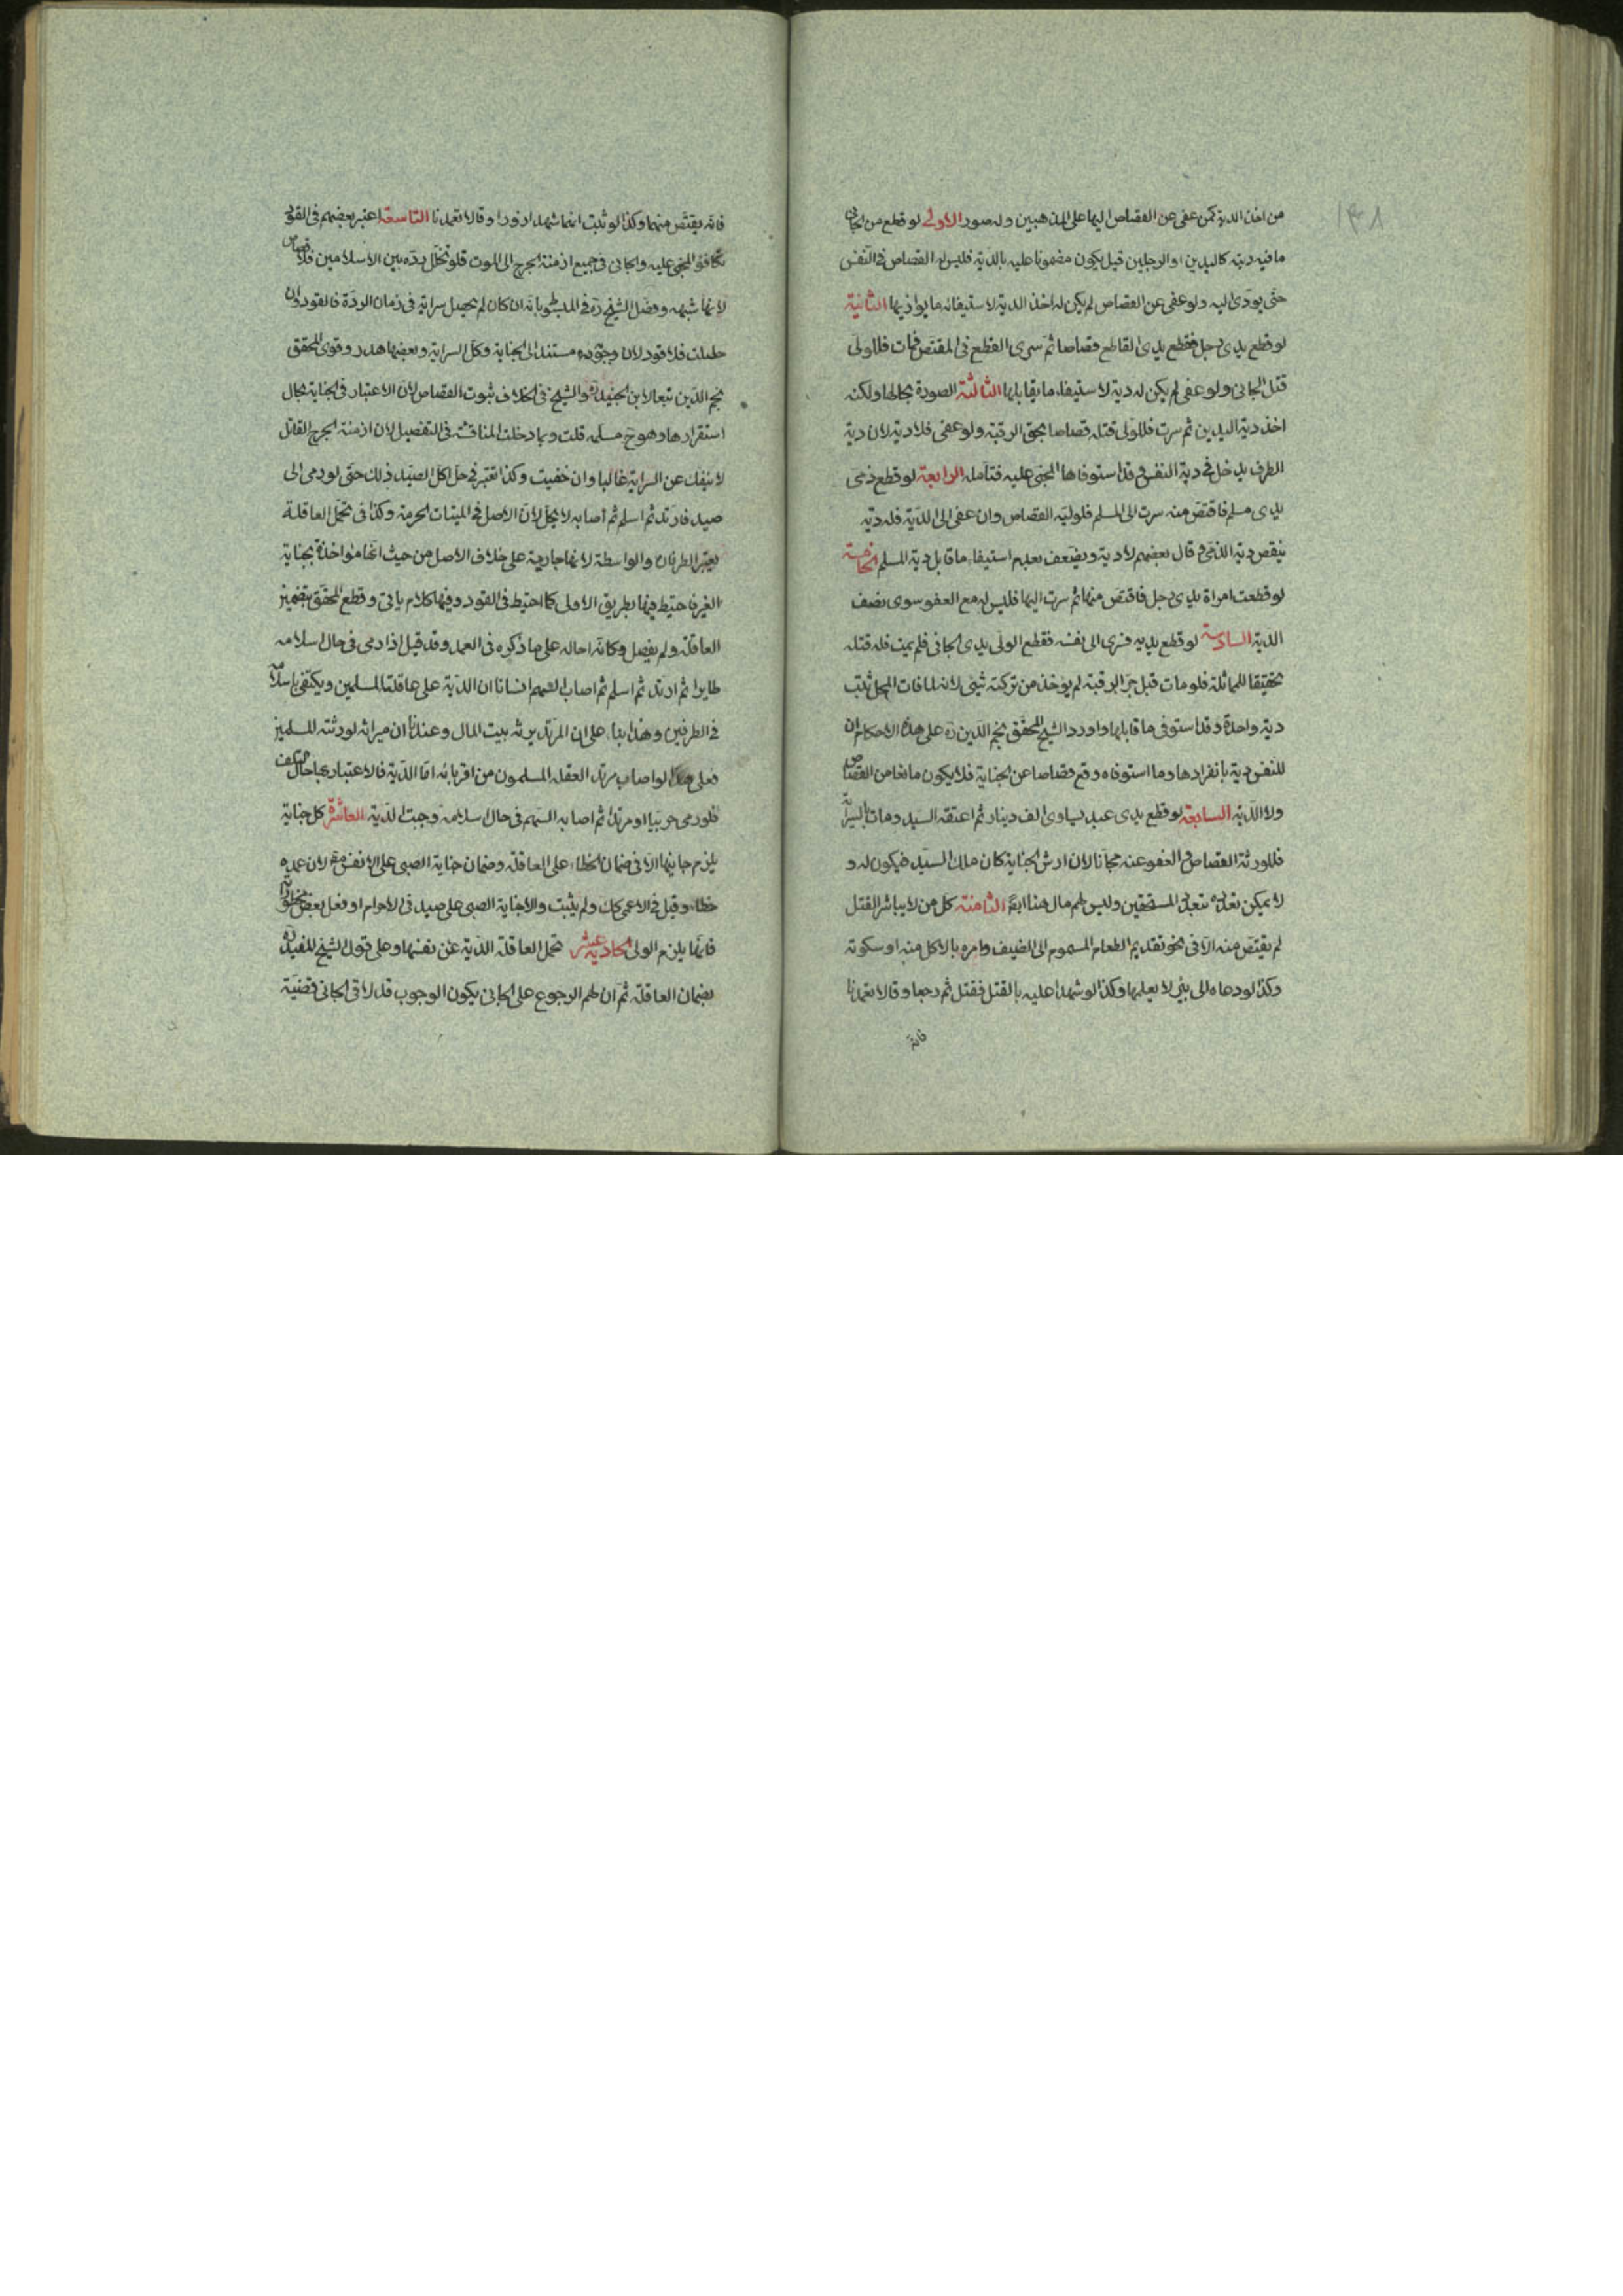 ١٣٨
من اخذ الدية كمن عفى عن القصاص اليها على المذهبين وله صور الاولى لو قطع من الجانى
ما فيه ديته كاليدين او الرجلين قيل يكون مضمونا عليه بالدية فليس له القصاص فى النفس
حتى يودى اليه ولو عفى عن القصاص لم يكن له اخذ الدية لاستيفائه ما يوازيها الثانية
لو قطع يدى رجل فقطع يدى القاطع قصاصا ثم سرى القطع فى المقتص فمات فللولى
قتل الجانى ولو عفى لم يكن له دية لاستيفاء ما يقابلها الثالثة الصورة بحالها ولكنه
اخذ دية اليدين ثم سرت فللولى قتله قصاصا بحق الرقبة ولو عفى فلا دية لان دية
الطرف يدخل فى دية النفس وقد استوفاها المجنى عليه فتامله الرابعة لو قطع ذمى
يدى مسلم فاقتص منه سرت الى المسلم فلوليه القصاص وان عفى الى الدية فله دية
ينقص دية الذمى و قال بعضهم لا دية ويضعف بعدم استيفاء ما قابل دية المسلم الخامسة
لو قطعت امراة يدى رجل فاقتص منها ثم سرت اليها فليس له مع العفو سوى نصف
الدية السادسة لو قطع يديه فسرى الى نفسه فقطع الولى يدى الجانى فلم يمت فله قتله
تحقيقا للمماثلة فلو مات قبل جز الرقبة لم يؤخذ من تركته شيئى لانه لما فات المحل ثبت
دية واحدة وقد استوفى ما قابلها واورد الشيخ المحقق نجم الدين ره على هذه الاحكام ان
للنفس دية بانفرادها وما استوفاه وقع قصاصا عن الجناية فلا يكون مانعا من القصاص
ولا الدية السابعة لو قطع يدى عبد يساوى الف دينار ثم اعتقه السيد ومات بالسراية
فللورثة القصاص فى العفو عنه مجانا لان ارش الجناية كان ملك السيد فيكون له و
لا يمكن تعدده بتعدد المستحقين وليس لهم مال هنا ايضا الثامنة كل من لا يباشر القتل
لم يقتص منه الا فى نحو تقديم الطعام المسموم الى الضيف وامره بالاكل منه او سكوته
وكذا لو دعاه الى بئر لا يعلمها وكذا لو شهدا عليه بالقتل فقتل ثم رجعا وقالا تعمدنا
فانه
فانه يقتص منهما وكذا لو ثبت انهما شهدا زورا وقالا تعمدنا التاسعة اعتبر بعضهم فى القود
تكافؤ المجنى عليه والجانى فى جميع ازمنة الجرح الى الموت فلو تخلل ردة بين الاسلامين فلا قصاص
لانها شبهه وفصل الشيخ ره فى المبسوط بانه ان كان لم يحصل سراية فى زمان الردة فالقود وان
حصلت فلا قود لان وجوده مستند الى الجناية وكل السراية وبعضها هدر وقوى المحقق
نجم الدين تبعا لابن الجنيد ره والشيخ فى الخلاف ثبوت القصاص لان الاعتبار فى الجناية بحال
استقرارها وهو ح مسلم قلت وربما دخلت المناقشة فى التفصيل لان ازمنة الجرح القاتل
لا ينفك عن السراية غالبا وان خفيت وكذا تعتبر فى حل اكل الصيد ذلك حتى لو رمى الى
صيد فارتد ثم اسلم ثم اصابه لا يحل لان الاصل فى الميتات الحرمة وكذا فى تحمل العاقلة
يعتبر الطرفان والواسطة لانها جارية على خلاف الاصل من حيث انها مؤاخذة بجناية
الغير فاحتيط فيها بطريق الاولى كما احتيط فى القود وفيها كلام ياتى وقطع المحقق بتضمين
العاقلة ولم يفصل وكانه احاله على ما ذكره فى العمد وقد قيل اذا رمى فى حال اسلامه
طايرا ثم ارتد ثم اسلم ثم اصاب السهم انسانا ان الدية على عاقلته المسلمين ويكتفى باسلامه
فى الطرفين وهذا بناء على ان المرتد يرثه بيت المال وعندنا ان ميراثه لورثته المسلمين
فعلى هذا لو اصاب مرتدا لعقله المسلمون من اقربائه اما الدية فالاعتبار بها حال التلف
فلو رمى حربيا او مرتدا ثم اصابه السهم فى حال اسلامه وجبت الدية العاشرة كل جناية
يلزم جانيها الا فى ضمان الخطاء على العاقلة وضمان جناية الصبى على الانفس لان عمده
خطاء وقيل فى الاعمى كك ولم يثبت والا جناية الصبى على صيد فى الاحرام او فعل بعض محظوراته
فانها يلزم الولى الحادية عشر تحمل العاقلة الدية عن نفسها وعلى قول الشيخ المفيد ره
بضمان العاقلة ثم ان لهم الرجوع على الجانى يكون الوجوب قد لاقى الجانى قضية